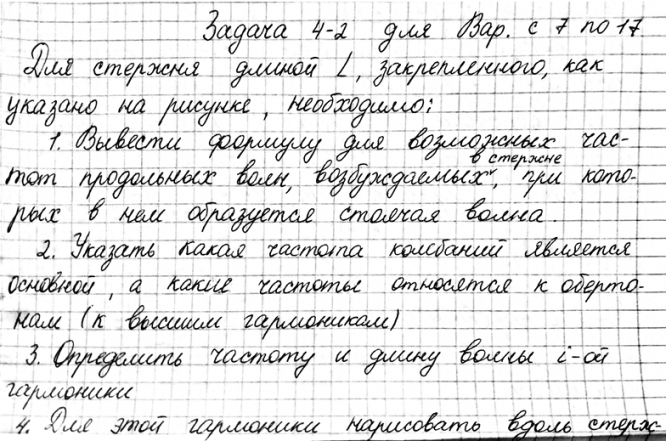 Задача 4-2 для Вар. с 7 по 17
Для стержня длиной L, закрепленного, как
указано на рисунке, необходимо:
1. Вывести формулу для возможных час-
в стержне
тот продольных волн, возбуждаемых, при кото-
рых в нем образуется стоячая волна.
2. Указать какая частота колебаний является
основной, а какие частоты относятся к оберто-
нам (к высшим гармоникам)
3. Определить частоту и длину волны i-ой
гармоники
4. Для этой гармоники нарисовать вдоль стерж